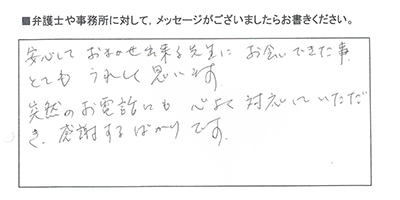 ■弁護士や事務所に対して、メッセージがございましたらお書きください。
安心して おまかせ出来る先生に お会いできた事、
とても うれしく思います。
突然のお電話にも 心よく対応していただ
き、感謝するばかりです。